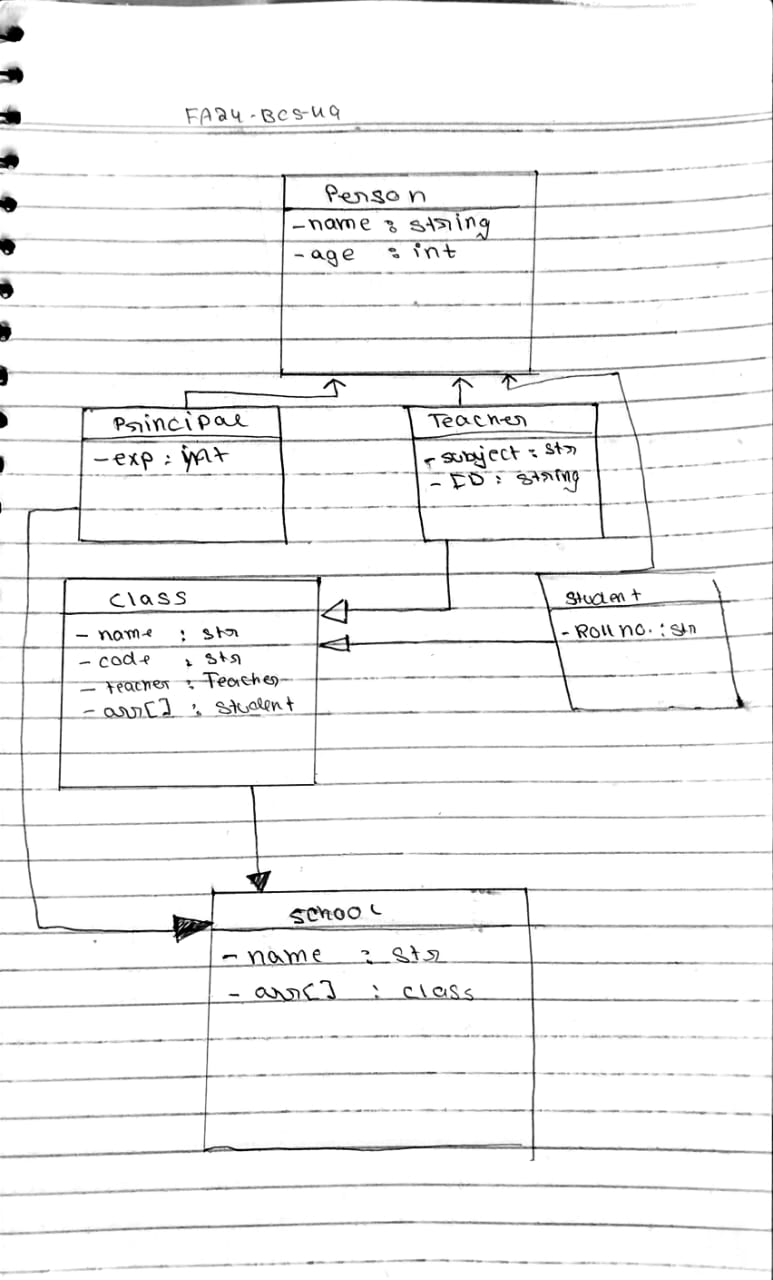 FA24-BCS-49
Person
-name : string
-age : int
Principal
-exp : int
Teacher
-subject : str
-ID : string
Class
-name : str
-code : str
-teacher : Teacher
-arr[] : Student
Student
-Roll no. : str
School
-name : str
-arr[] : class